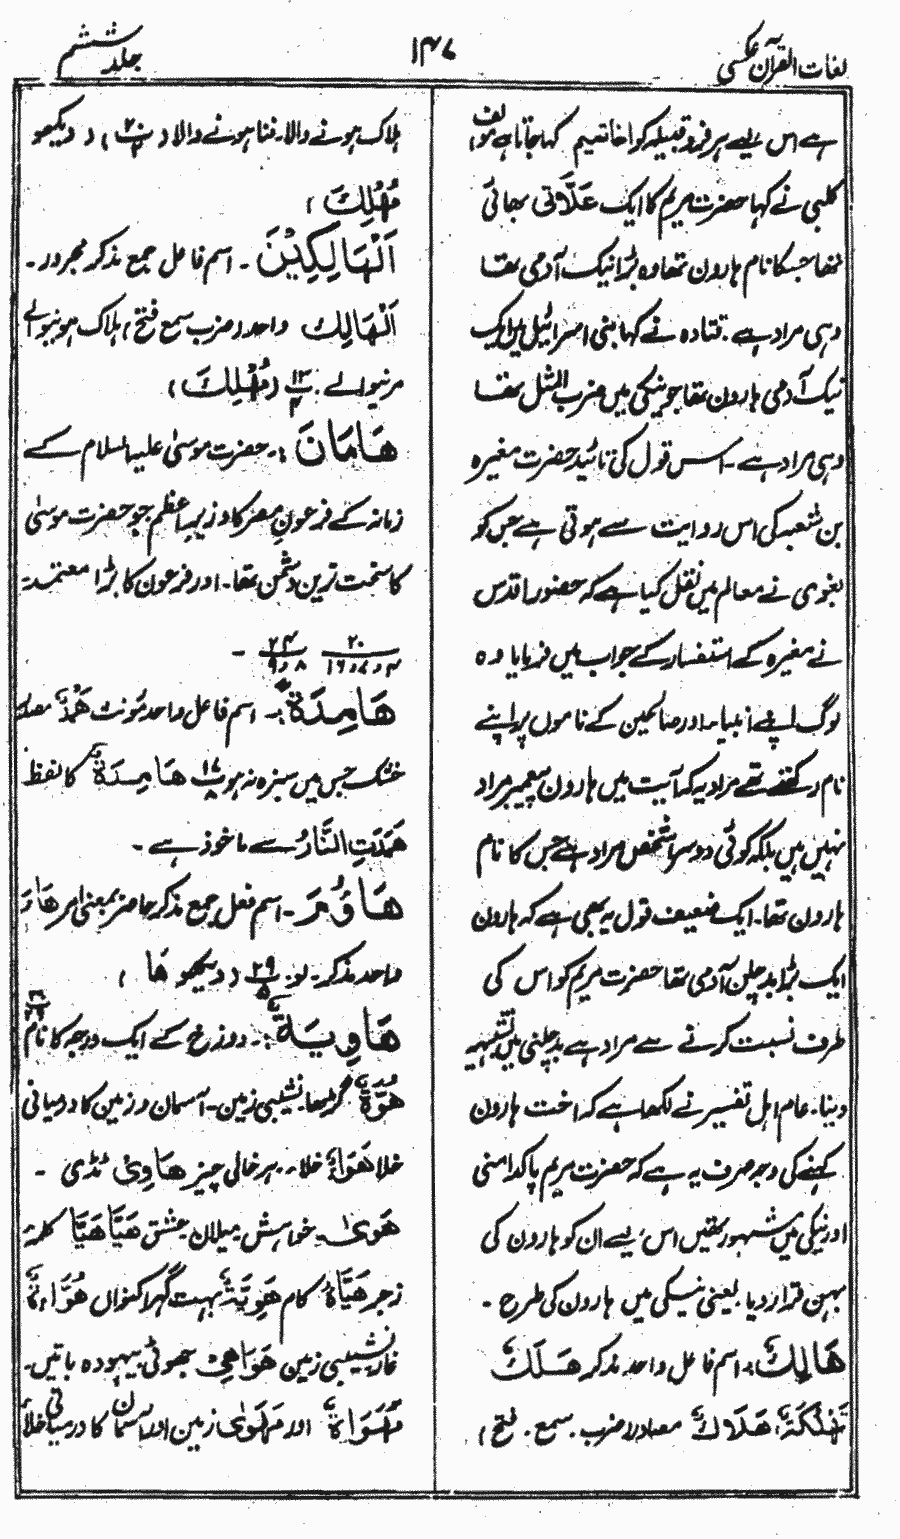 لغات القرآن عکسی
۱۴۷
جلد ششم
ہے اس لیے ہر فرد قبیلہ کو اخاتمیم کہا جاتا ہے مؤلف
کلبی نے کہا حضرت مریم کا ایک عَلَّاتی بھائی
تھا جسکا نام ہارون تھا وہ بڑا نیک آدمی تھا
وہی مراد ہے۔ قتادہ نے کہا بنی اسرائیل میں ایک
نیک آدمی ہارون تھا جو نیکی میں ضرب المثل تھا
وہی مراد ہے۔ اس قول کی تائید حضرت مغیرہ
بن شعبہ کی اس روایت سے ہوتی ہے جس کو
بغوی نے معالم میں نقل کیا ہے کہ حضور اقدس
نے مغیرہ کے استفسار کے جواب میں فرمایا وہ
لوگ اپنے انبیاء اور صالحین کے ناموں پر اپنے
نام رکھتے تھے مراد یہ کہ آیت میں ہارون پیغمبر مراد
نہیں ہیں بلکہ کوئی دوسرا شخص مراد ہے جس کا نام
ہارون تھا۔ ایک ضعیف قول یہ بھی ہے کہ ہارون
ایک بڑا بدچلن آدمی تھا حضرت مریم کو اس کی
طرف نسبت کرنے سے مراد ہے بدچلنی میں تشبیہ
دینا۔ عام اہل تفسیر نے لکھا ہے کہ اخت ہارون
کہنے کی وجہ صرف یہ ہے کہ حضرت مریم پاکدامنی
اور نیکی میں مشہور تھیں اس لیے ان کو ہارون کی
بہن قرار دیا۔ یعنی نیکی میں ہارون کی طرح۔
هَالِكٌ :۔ اسم فاعل واحد مذکر هَلَكٌ
تَهْلُكَةٌ، هَلَاكٌ مصادر ضرب۔ سمع۔ فتح (
ہلاک ہونے والا۔ فنا ہونے والا (۲۰) (دیکھو
مُهْلِكَ)
اَلْهَالِكِيْنَ ۔ اسم فاعل جمع مذکر مجرور۔
اَلْهَالِك واحد (ضرب سمع فتح) ہلاک ہونیوالے
مرنیوالے۔ ۱۳/۴ (مُهْلِكَ)
هَامَانَ :۔ حضرت موسیٰ علیہ السلام کے
زمانہ کے فرعونِ مصر کا وزیرِ اعظم جو حضرت موسیٰ
کا سخت ترین دشمن تھا۔ اور فرعون کا بڑا معتمد۔
۲۰/۴،۷،۱۶ ۲۴/۸،۹ ۔
هَامِدَةً :۔ اسم فاعل واحد مؤنث هَمْدٌ مصدر
خشک جس میں سبزہ نہ ہو ۱۷/۸ هَامِدَةٌ کا لفظ
هَمَدَتِ النَّارُ سے ماخوذ ہے ۔
هَاؤُمُ ۔ اسم فعل جمع مذکر حاضر بمعنی امر هَاؤَ
واحد مذکر۔ لو۔ ۲۹/۵ (دیکھو هَا )
هَاوِيَةٌ :۔ دوزخ کے ایک درجہ کا نام
هُوَّةٌ گڑھا۔ نشیبی زمین۔ آسمان و زمین کا درمیانی
خلا هَوَاءٌ خلا۔ ہر خالی چیز هَاوِیْ ٹڈی ۔
هَوٰی۔ خواہش میلان عشق هَيَّا هَيَّا کلمۂ
زجر هَيَّاهٌ کام هَوِيَّةٌ بہت گہرا کنواں هُوَّاءَةٌ
غار۔ نشیبی زمین هَوَاهِیْ جھوٹی بیہودہ باتیں۔
مُهْوَاةٌ اور مَهْوٰی زمین اور آسمان کا درمیانی خلاء